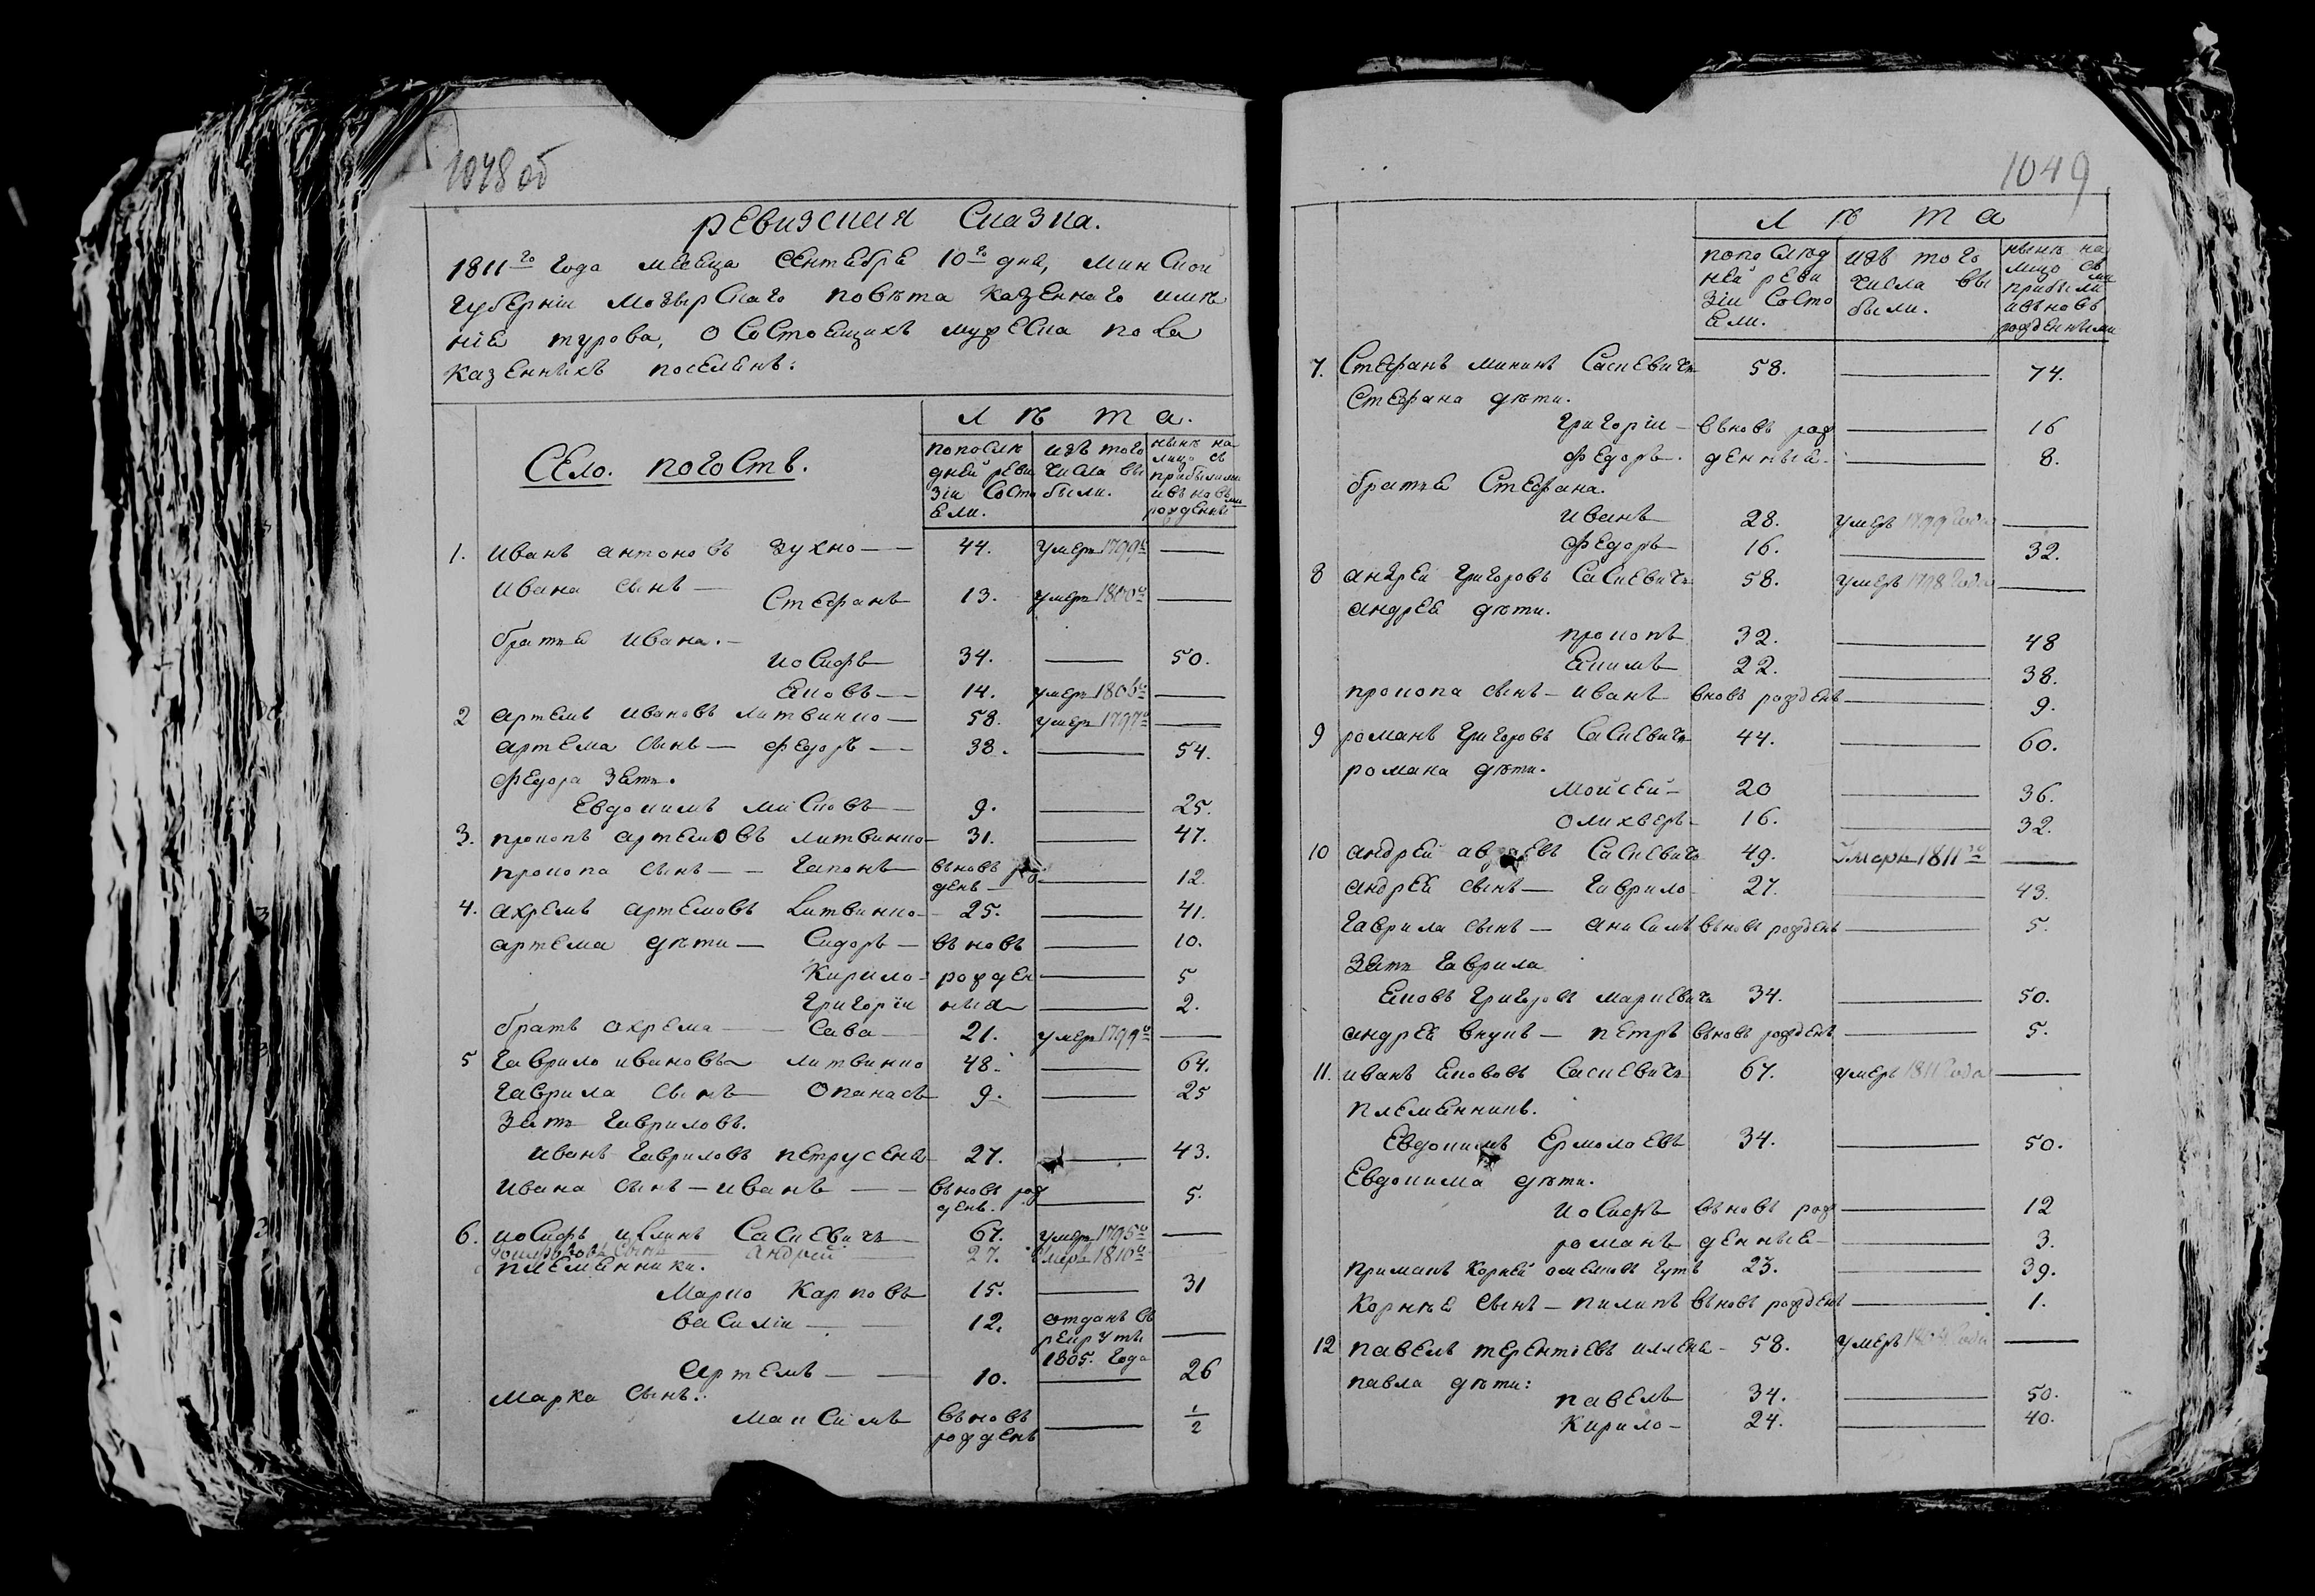 1048 об
ревизская Сказка.
1811го года месеца Сентебре 10го дне, минской
губерніи мозырскаго повѣта казенного имѣ
ніе турова, о Состоещихъ мужеска пола
казенныхъ поселенъ:
Село. погостъ.
лѣта.
попослѣ
дней реви
зіи Состо
ели.
изъ того
числа вы
были.
нынѣ на
лицо съ
прибылими
ивъновь
рожденны
ми
1. иванъ антоновъ зухно — 44. умеръ 1799го —
ивана сынъ — Стефанъ 13. умеръ 1800го —
братье ивана. —
иосифъ 34. — 50.
еловъ — 14. умеръ 1806го —
2 артемъ ивановъ литвинко — 58. умеръ 1797го —
артема сынъ — федоръ — 38. — 54.
федора зеть.
Евдокимъ мисковъ — 9. — 25.
3. прокопъ артемовъ литвинко — 31. — 47.
прокопа сынъ — гапонъ — въновь рож
денъ — — 12.
4. ахремъ артемовъ литвинко — 25. — 41.
артема дѣти — Сидоръ — въновь — 10.
Кирило — рожден — 5
григоріи ныя — 2.
братъ охрема — Сава — 21. умеръ 1799го —
5 гаврило ивановъ литвинко 48. — 64.
гаврила сынъ — Опанасъ 9. — 25
зеть гавриловъ.
иванъ гавриловъ петрусенъ 27. — 43.
ивана сынъ — иванъ — въновь рож
денъ. — 5.
6. иосифъ илинъ Саскевичъ 67. умеръ 1795го —
иосифовъ сынъ — андрей 27. умеръ 1810го —
племенники.
Марко Карповъ 15. — 31
василіи — 12. отданъ въ
рекруты
1805. года —
артемъ — 10. — 26
марка сынъ:
максимъ въновь
рожденъ — 1/2
1049
лѣта
попослѣд
ней реви
зіи Состо
ели.
изъ того
числа вы
были.
нынѣ на
лицо съ
прибылими
ивъновь
рожденными
7. Стефанъ мининъ Саскевичъ 58. — 74.
Стефана дѣти.
григоріи — въновь рож — 16
федоръ. денныя. — 8.
братье Стефана.
иванъ 28. умеръ 1799 года —
федоръ 16. — 32.
8 андреи григоровъ Саскевичъ 58. умеръ 1798 года —
андрее дѣти.
прокопъ 32. — 48
екимъ 22. — 38.
прокопа сынъ — иванъ вновь рожденъ — 9.
9 романъ григоровъ Саскевичъ 44. — 60.
романа дѣти.
мойсей — 20 — 36.
олихверъ — 16. — 32.
10 андрей Саскевичъ 49. Умеръ 1811го —
андрее сынъ — гаврило 27. — 43.
гаврила сынъ — анисимъ въновь рожденъ — 5.
зеть гаврила
еловъ григоровъ маркевичъ 34. — 50.
андрее внукъ — петръ въновь рожденъ — 5.
11. иванъ еловъ Саскевичъ 67. умеръ 1811 года —
племенникъ.
Евдокимъ Ермолаевъ 34. — 50.
Евдокима дѣти.
иосифъ въновь рож — 12
романъ денные — 3.
приманъ Корней омелновъ гутъ 23. — 39.
Корнѣе сынъ — пилипъ въновь рожденъ — 1.
12 павелъ терентіевъ 58. умеръ года —
павла дѣти:
павелъ 34. — 50.
Кирило — 24. — 40.